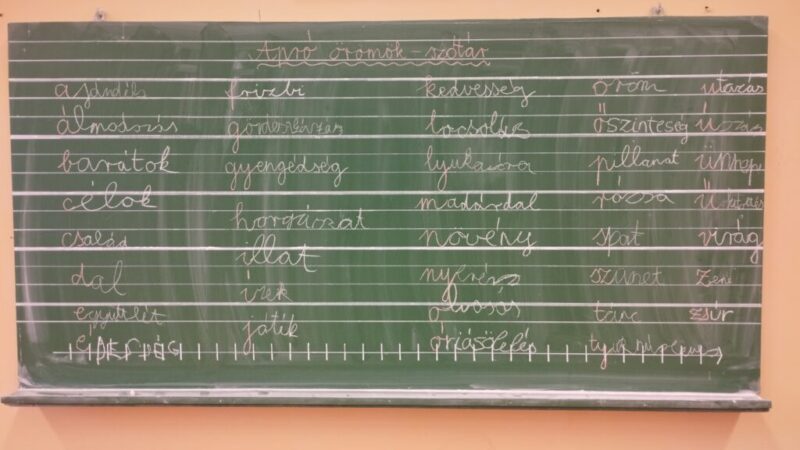 Apró örömök - szótár
ajándék
álmodozás
barátok
célok
család
dal
együttlét
frizbi
gördeszkázás
gyengédség
horgászat
illat
ízek
játék
kedvesség
locsolás
madárdal
növény
olvasás
óriásölelés
öröm
őszinteség
pillanat
rózsa
sport
szünet
tánc
utazás
ünnep
virág
zene
zsúr